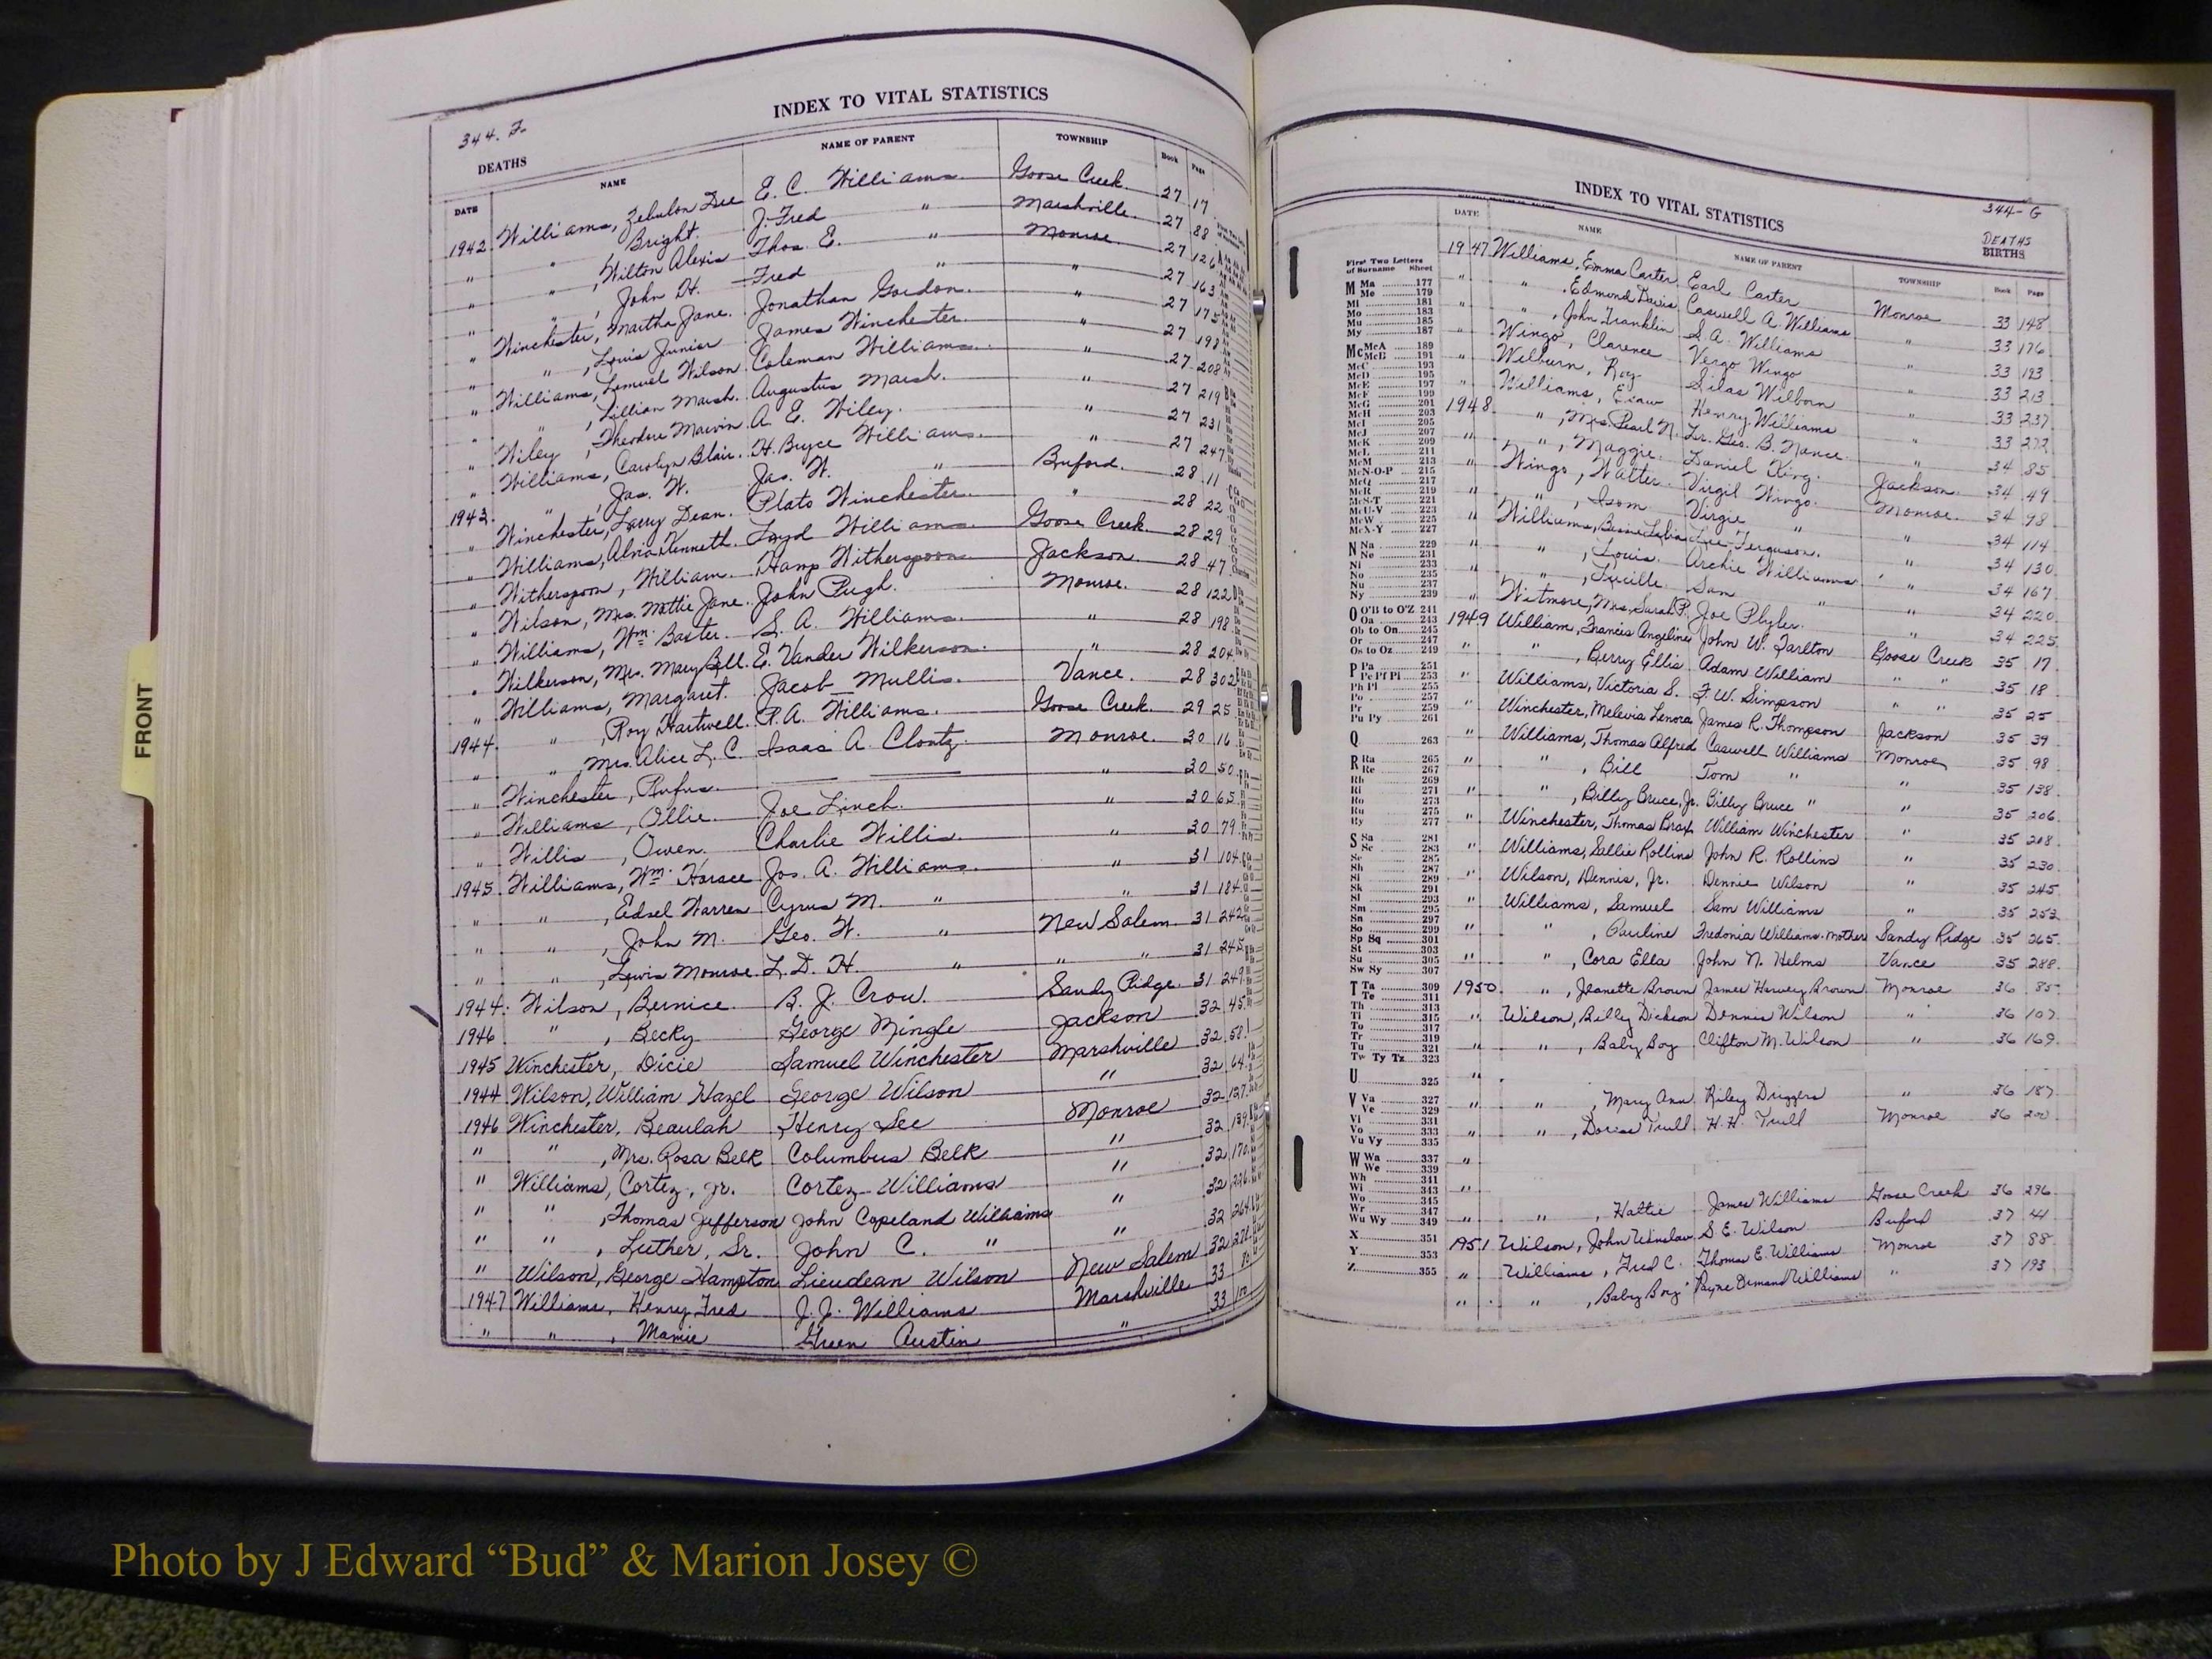 FRONT
INDEX TO VITAL STATISTICS
344. F.
DEATHS
DATE NAME NAME OF PARENT TOWNSHIP Book Page
1942 Williams, Zebulon Dee E. C. Williams. Goose Creek. 27 17
" " Bright. J. Fred " Marshville. 27 88
" " , Wilton Alexis Thos. E. " Monroe. 27 126
" " , John H. Fred " " 27 163
" Winchester, Martha Jane. Jonathan Gordon. " 27 175
" " , Louis Junior James Winchester. " 27 198
" Williams, Lemuel Wilson. Coleman Williams. " 27 208
" " , Lillian Marsh. Augustus Marsh. " 27 219
" Wiley , Theodore Marvin. A. E. Wiley. " 27 231
" Williams, Carolyn Blair. H. Bryce Williams. " 27 247
1943. " , Jas. W. Jas. W. " Buford. 28 11
" Winchester, Larry Dean. Plato Winchester. " 28 22
" Williams, Kenneth. Loyd Williams. Goose Creek. 28 29
" Witherspoon, William. Hamp Witherspoon Jackson. 28 47
" Wilson, Mrs. Mattie Jane. John Pugh. Monroe. 28 122
" Williams, Wm. Baxter. S. A. Williams. " 28 198
" Wilkerson, Mrs. Mary Bell. E. Vander Wilkerson. " 28 204
" Williams, Margaret. Jacob Mullis. Vance. 28 302
1944. " , Roy Hartwell. R. A. Williams. Goose Creek. 29 25
" " Mrs. Alice L. C. Isaas A. Clontz. Monroe. 30 16
" Winchester, Rufus. " 30 50
" Williams, Ollie. Joe Linch. " 30 65
" Willis , Owen. Charlie Willis. " 30 79
1945. Williams, Wm. Horace Jos. A. Williams. " 31 104
" " , Edsel Warren Cyrus M. " " 31 184
" " , John M. Geo. W. " New Salem. 31 242
" " , Lewis Monroe. L. D. H. " " " 31 245
1944. Wilson, Bernice. B. J. Crow. Sandy Ridge. 31 249
1946 " , Becky George Mingle Jackson 32 45
1945 Winchester, Dicie Samuel Winchester Marshville 32 58
1944 Wilson, William Hazel George Wilson " 32 64
1946 Winchester, Beaulah Henry Lee Monroe 32 127
" " , Mrs. Rosa Belk Columbus Belk " 32 139
" Williams, Cortez, Jr. Cortez Williams " 32 170
" " , Thomas Jefferson John Copeland Williams " 32 226
" " , Luther, Sr. John C. " " 32 264
" Wilson, George Hampton Lieudean Wilson New Salem 32
1947 Williams, Henry Fred J. J. Williams Marshville 33
" " , Mamie Green Austin " 33
INDEX TO VITAL STATISTICS
344-G
DEATHS
BIRTHS
DATE NAME NAME OF PARENT TOWNSHIP Book Page
1947 Williams, Emma Carter Earl Carter Monroe 33 148
" " , Edmond Davis Caswell A. Williams " 33 176
" " , John Franklin S. A. Williams " 33 193
" Wingo, Clarence Vergo Wingo " 33 213
" Wilburn, Roy Silas Wilborn " 33 237
" Williams, Henry Williams " 33 272
1948 " , Mrs. Pearl N. Geo. B. Nance. " 34 85
" " , Maggie. Daniel King. Jackson. 34 49
" Wingo, Walter. Virgil Wingo. Monroe. 34 98
" " , Isom Virgie " " 34 114
" Williams, Lee Ferguson. " 34 130
" " , Louis. Archie Williams " 34 167
" " , Lucille. Sam " " 34 220
" Witmore, Mrs. Sarah P. Joe Plyler. " 34 225
1949 William, Francis Angeline John W. Tarlton Goose Creek 35 17
" " , Berry Ellis Adam William " " 35 18
" Williams, Victoria S. F. W. Simpson " " 35 25
" Winchester, Melevia Lenora James R. Thompson Jackson 35 39
" Williams, Thomas Alfred Caswell Williams Monroe 35 98
" " , Bill Tom " " 35 138
" " , Billy Bruce, Jr. Billy Bruce " " 35 206
" Winchester, Thomas Brax William Winchester " 35 208
" Williams, Sallie Rollins John R. Rollins " 35 230
" Wilson, Dennis, Jr. Dennie Wilson " 35 245
" Williams, Samuel Sam Williams " 35 253
" " , Pauline Fredonia Williams-mother Sandy Ridge 35 265
" " , Cora Ella John N. Helms Vance 35 288
1950 " , Jeanette Brown James Harvey Brown Monroe 36 85
" Wilson, Billy Dickson Dennis Wilson " 36 107
" " , Baby Boy Clifton M. Wilson " 36 169
"
" " , Mary Ann Riley Driggers " 36 187
" " , Dorise Trull H. H. Trull Monroe 36 200
"
"
" " , Hattie James Williams Goose Creek 36 296
1951 Wilson, John Winslow S. E. Wilson Buford 37 41
" Williams, Fred C. Thomas E. Williams Monroe 37 88
" " , Baby Boy Payne Demand Williams " 37 193
First Two Letters
of Surname Sheet
M Ma 177
Me 179
Mi 181
Mo 183
Mu 185
My 187
Mc McA 189
McB 191
McC 193
McD 195
McE 197
McF 199
McG 201
McH 203
McI 205
McJ 207
McK 209
McL 211
McM 213
McN-O-P 215
McQ 217
McR 219
McS-T 221
McU-V 223
McW 225
McX-Y 227
N Na 229
Ne 231
Ni 233
No 235
Nu 237
Ny 239
O O'B to O'Z 241
Oa 243
Ob to On 245
Or 247
Os to Oz 249
P Pa 251
Pe Pf Pi 253
Ph Pl 255
Po 257
Pr 259
Pu Py 261
Q 263
R Ra 265
Re 267
Rh 269
Ri 271
Ro 273
Ru 275
Ry 277
S Sa 281
Sc 283
Se 285
Sh 287
Si 289
Sk 291
Sl 293
Sm 295
Sn 297
So 299
Sp Sq 301
St 303
Su 305
Sw Sy 307
T Ta 309
Te 311
Th 313
Ti 315
To 317
Tr 319
Tu 321
Tw Ty Tz 323
U 325
V Va 327
Ve 329
Vi 331
Vo 333
Vu Vy 335
W Wa 337
We 339
Wh 341
Wi 343
Wo 345
Wr 347
Wu Wy 349
X 351
Y 353
Z 355
Photo by J Edward “Bud” & Marion Josey ©